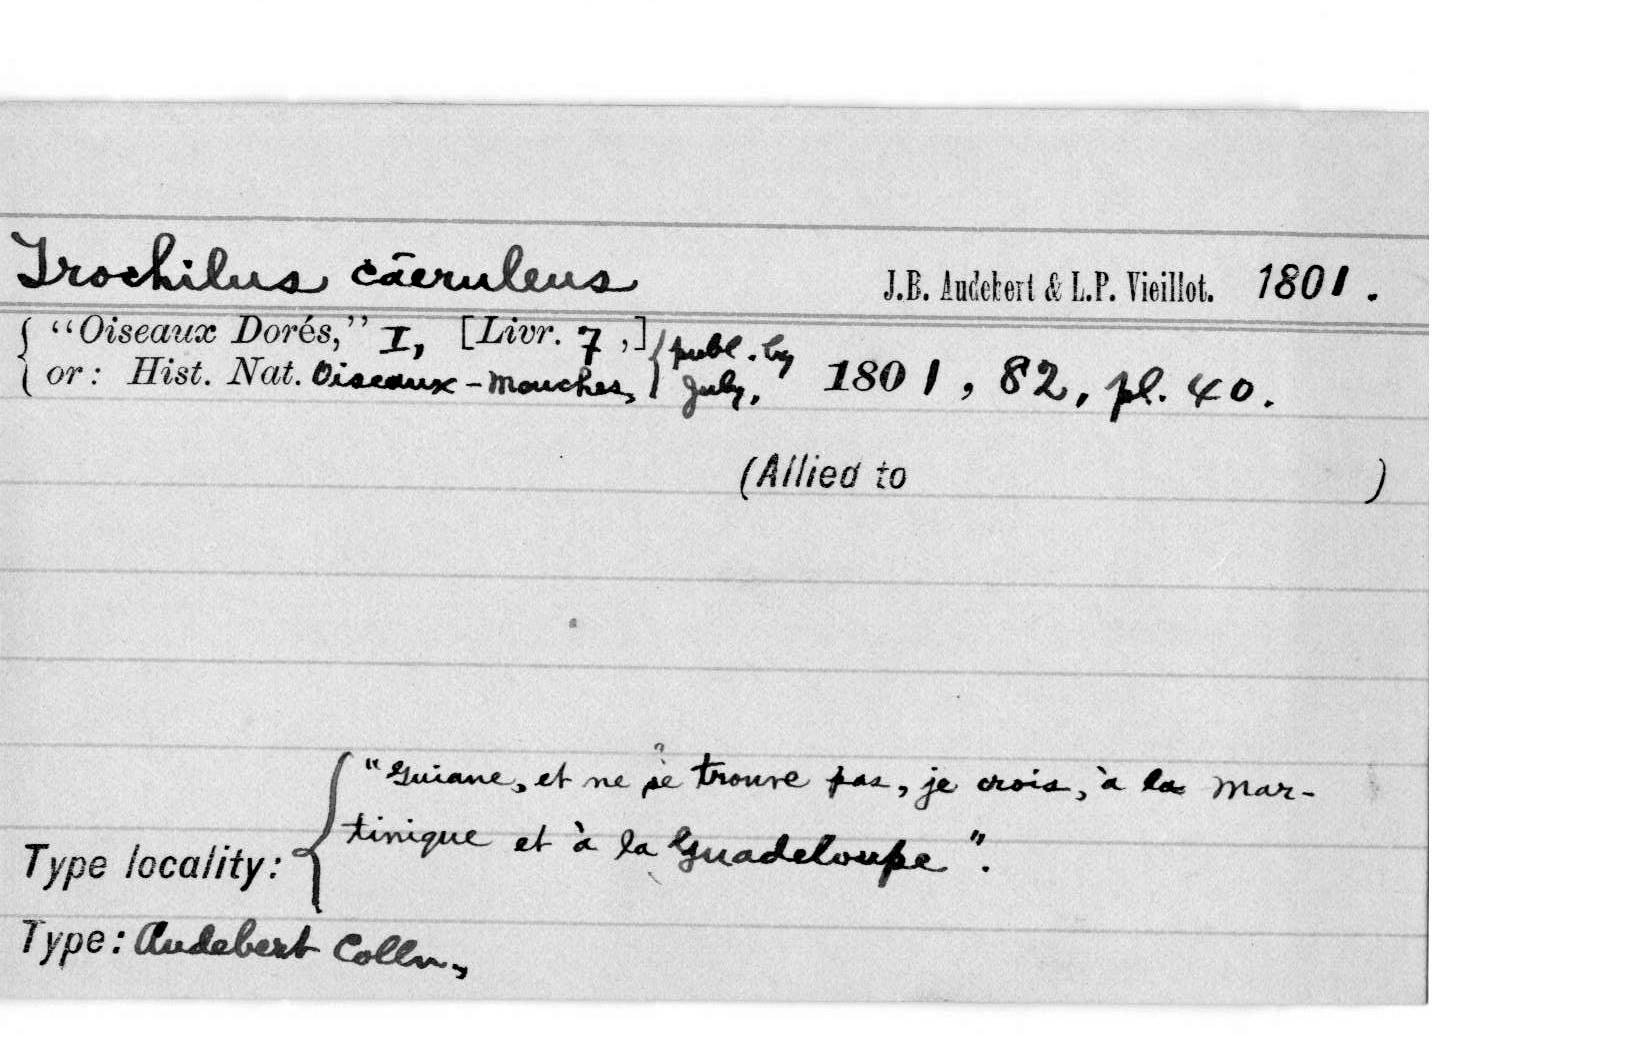 Trochilus cāeruleus J.B. Audebert & L.P. Vieillot. 1801.
"Oiseaux Dorés," I, [Livr. 7,] publ. by
or: Hist. Nat. Oiseaux-Mouches, July, 1801, 82, pl. 40.
(Allied to )
"Guiane, et ne se trouve pas, je crois, à la Mar-
tinique et à la Guadeloupe".
Type locality:
Type: Audebert Colln,